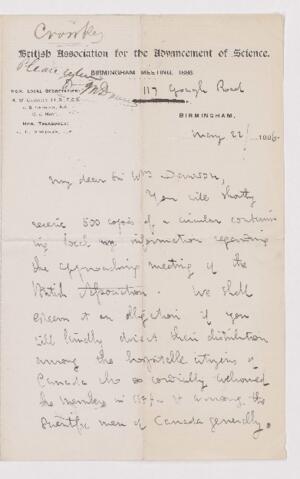 Crosskey
British Association for the Advancement of Science.
Please return
to
BIRMINGHAM MEETING, 1886
HON. LOCAL SECRETARIES:
HON. TREASURER:
117 Gough Road
BIRMINGHAM,
May 22/ 1886
My dear Sir Wm Dawson,
You will shortly
receive 500 copies of a circular contain-
ing local information regarding
the approaching meeting of the
British Association. We shall
esteem it an obligation if you
will kindly direct their distribution
among the hospitable citizens of
Canada who so cordially welcomed
the members in & among the
scientific men of Canada generally.